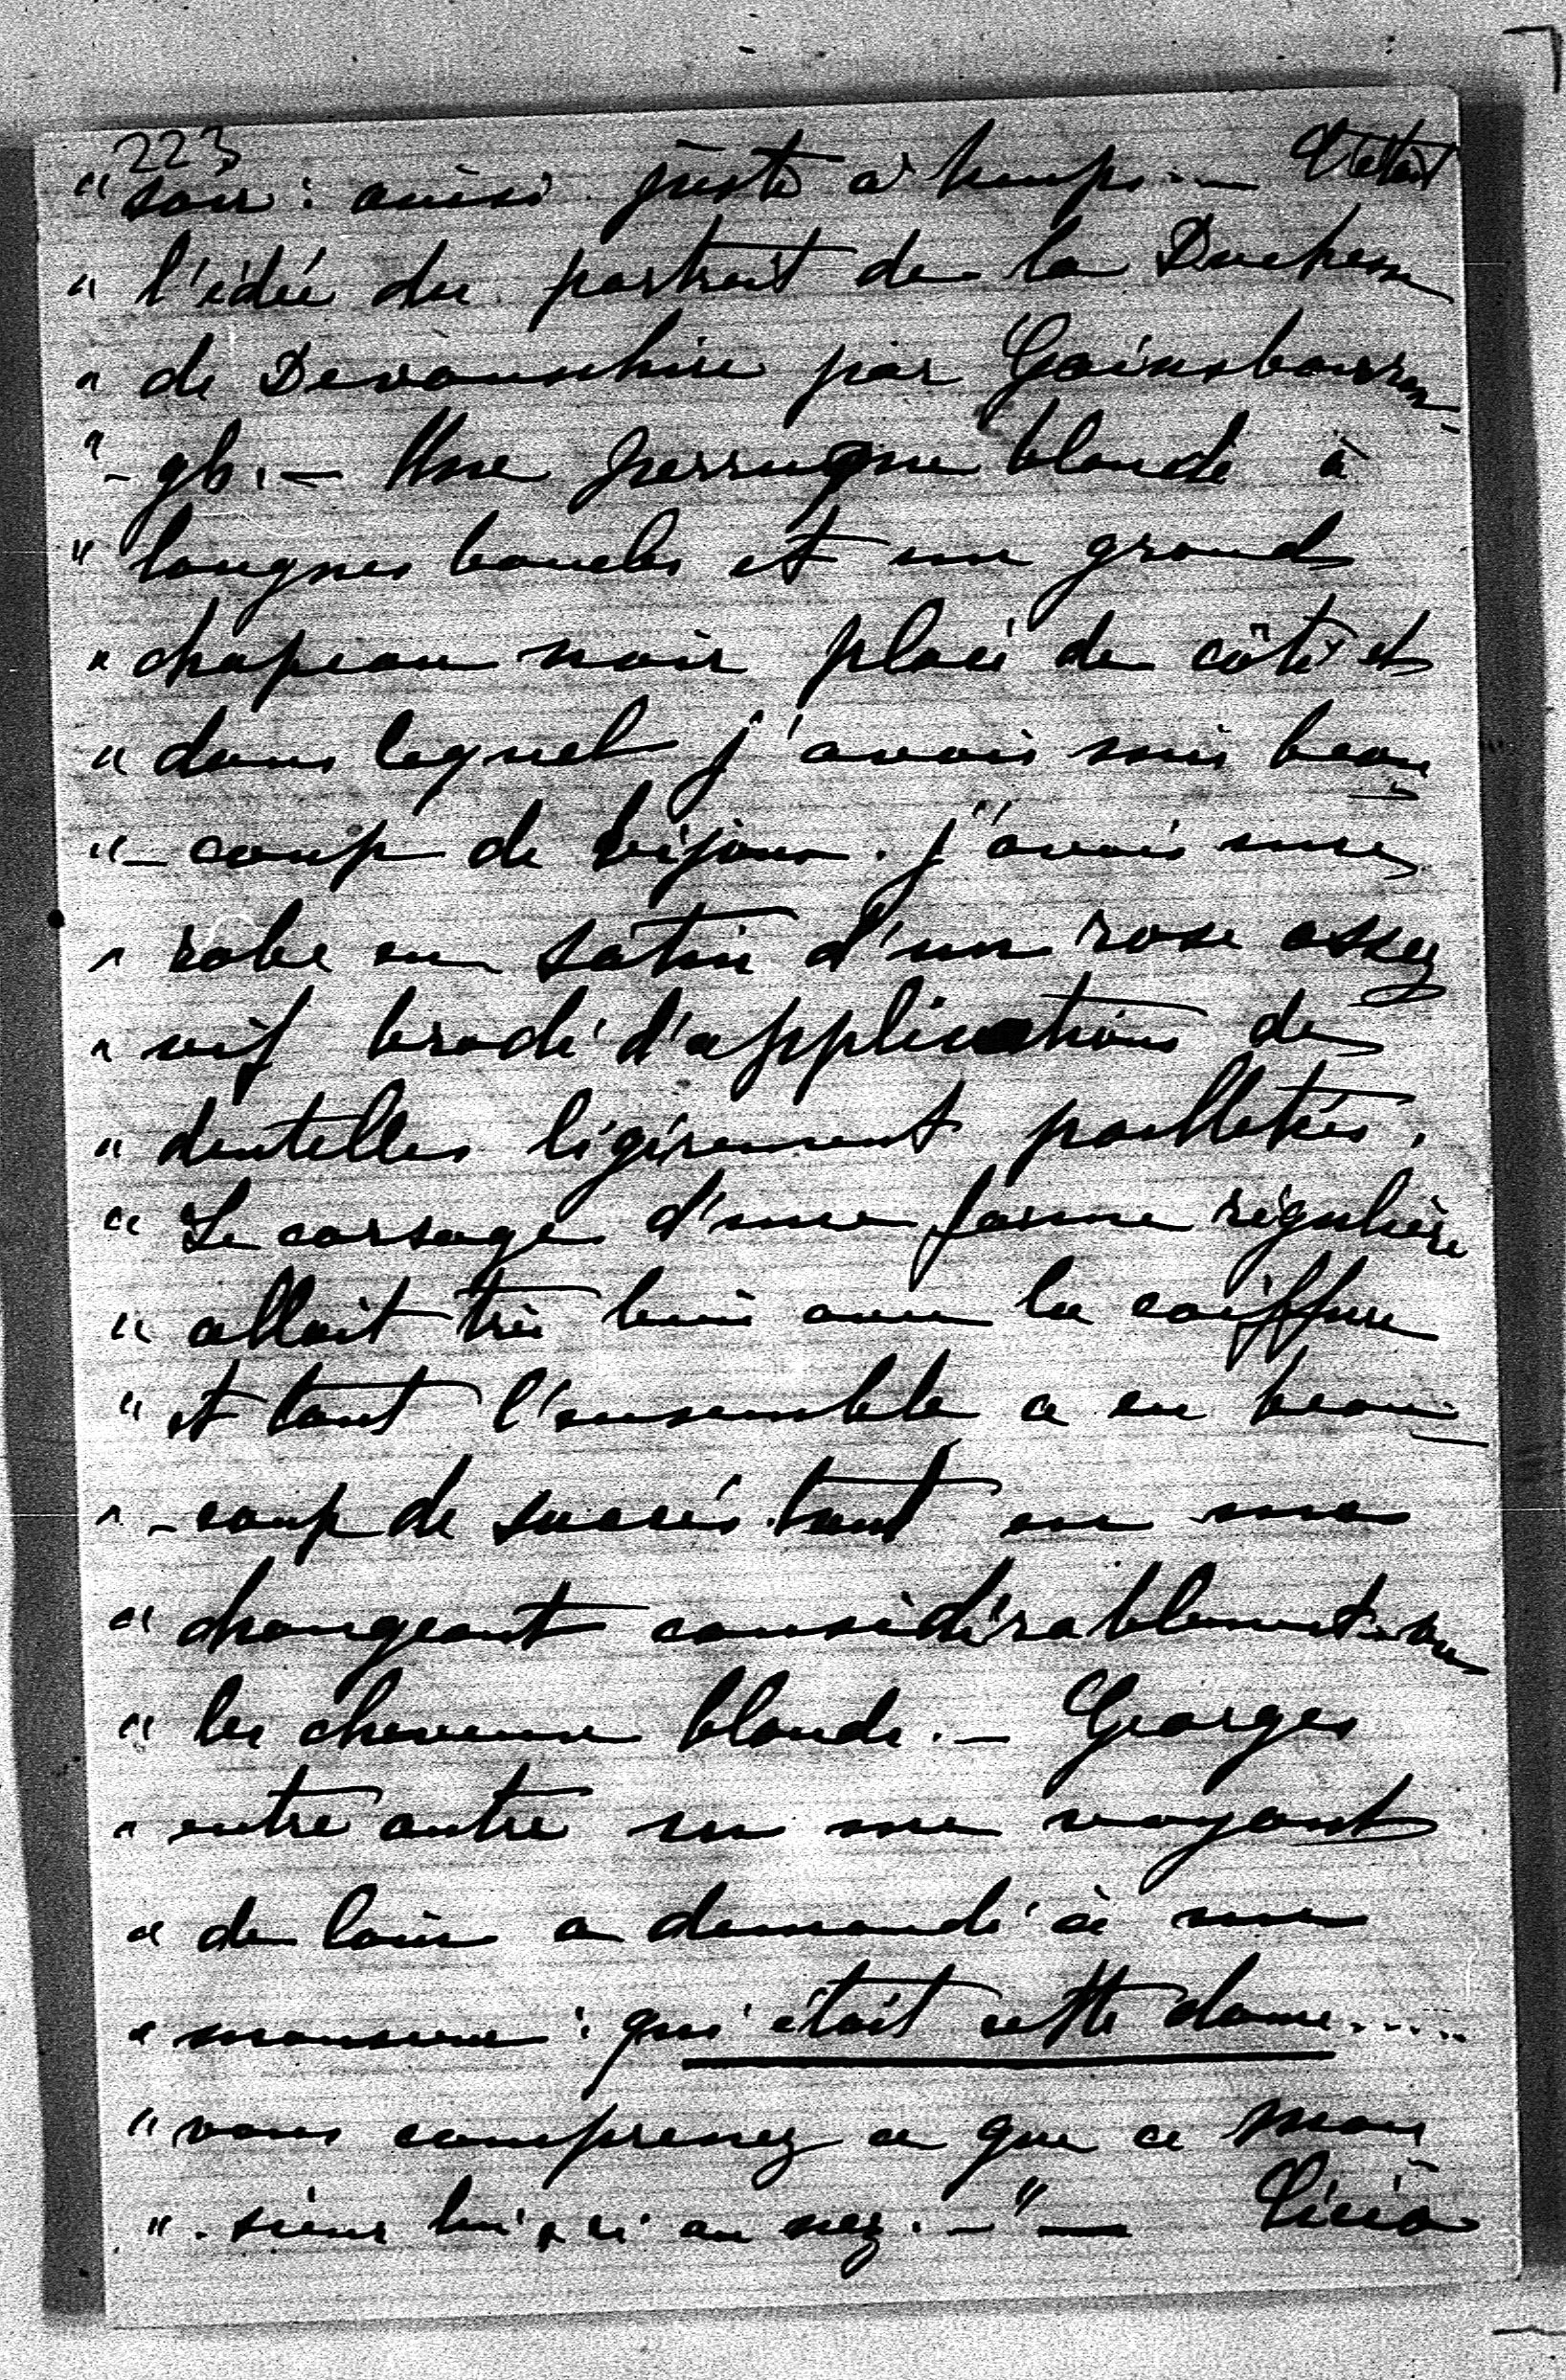 223
" soir : ainsi juste à temps. — C'était
" l'idée du portrait de la Duchesse
" de Devonshire par Gainsborou-
" - gh. — Une perruque blonde à
" longues boucles et un grand
" chapeau noir placé de côté et
" dans lequel j'avais mis beau
" - coup de bijoux. j'avais une
" robe en satin d'un rose assez
" vif brodé d'applications de
" dentelles légèrement pailletées.
" Le corsage d'une forme régulière
" allait très bien avec la coiffure
" et tout l'ensemble a eu beau-
" - coup de succès tout en me
" changeant considérablement vu
" les cheveux blonds. — Georges
" entre autre en me voyant
" de loin a demandé à un
" monsieur : qui était cette dame.....
" vous comprenez ce que ce mon-
" - sieur lui a ri au nez. — " —